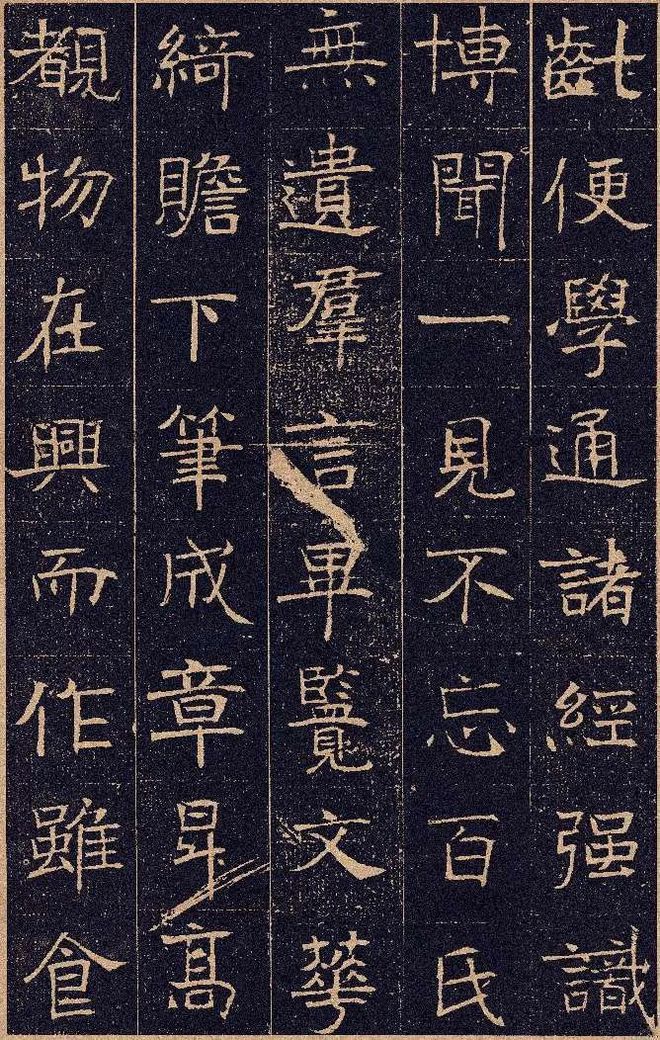 齔便學通諸經强識
博聞一見不忘百氏
無遺羣言畢覽文華
綺贍下筆成章昇高
覩物在興而作雖食